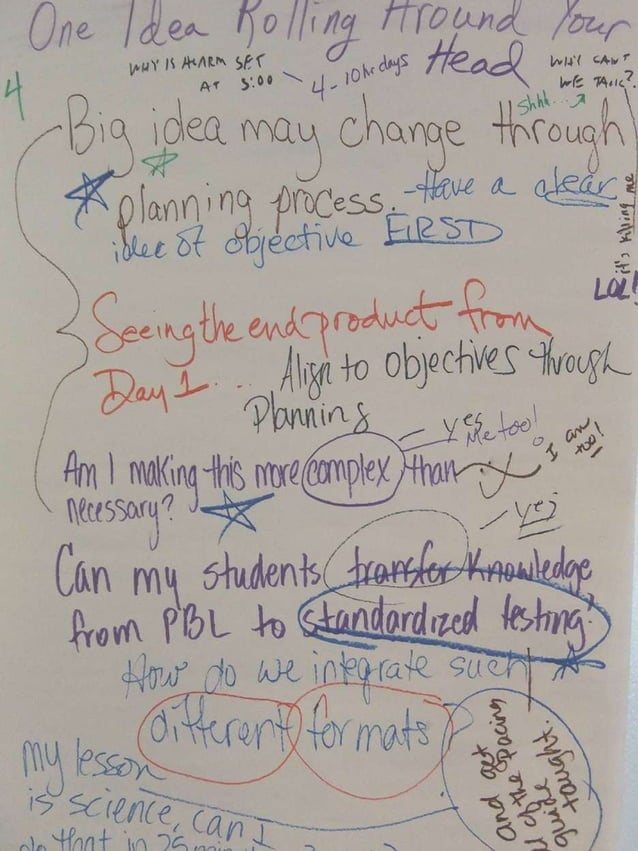 One Idea Rolling Around Your
Head
WHY IS ALARM SET
AT 5:00
4-10hr days
WHY CAN'T
WE TALK?
it's killing me
LOL!
Shhh...
4
Big idea may change through
planning process. - Have a clear
idea of objective FIRST
Seeing the end product from
Day 1... Align to objectives through
Planning
Am I making this more complex than
necessary?
yes
Me too!
I am
too!
Can my students transfer knowledge
from PBL to standardized testing?
yes
How do we integrate such
different formats?
my lesson
is science, can I
do that in 25
and get
of the pacing
guide
taught.